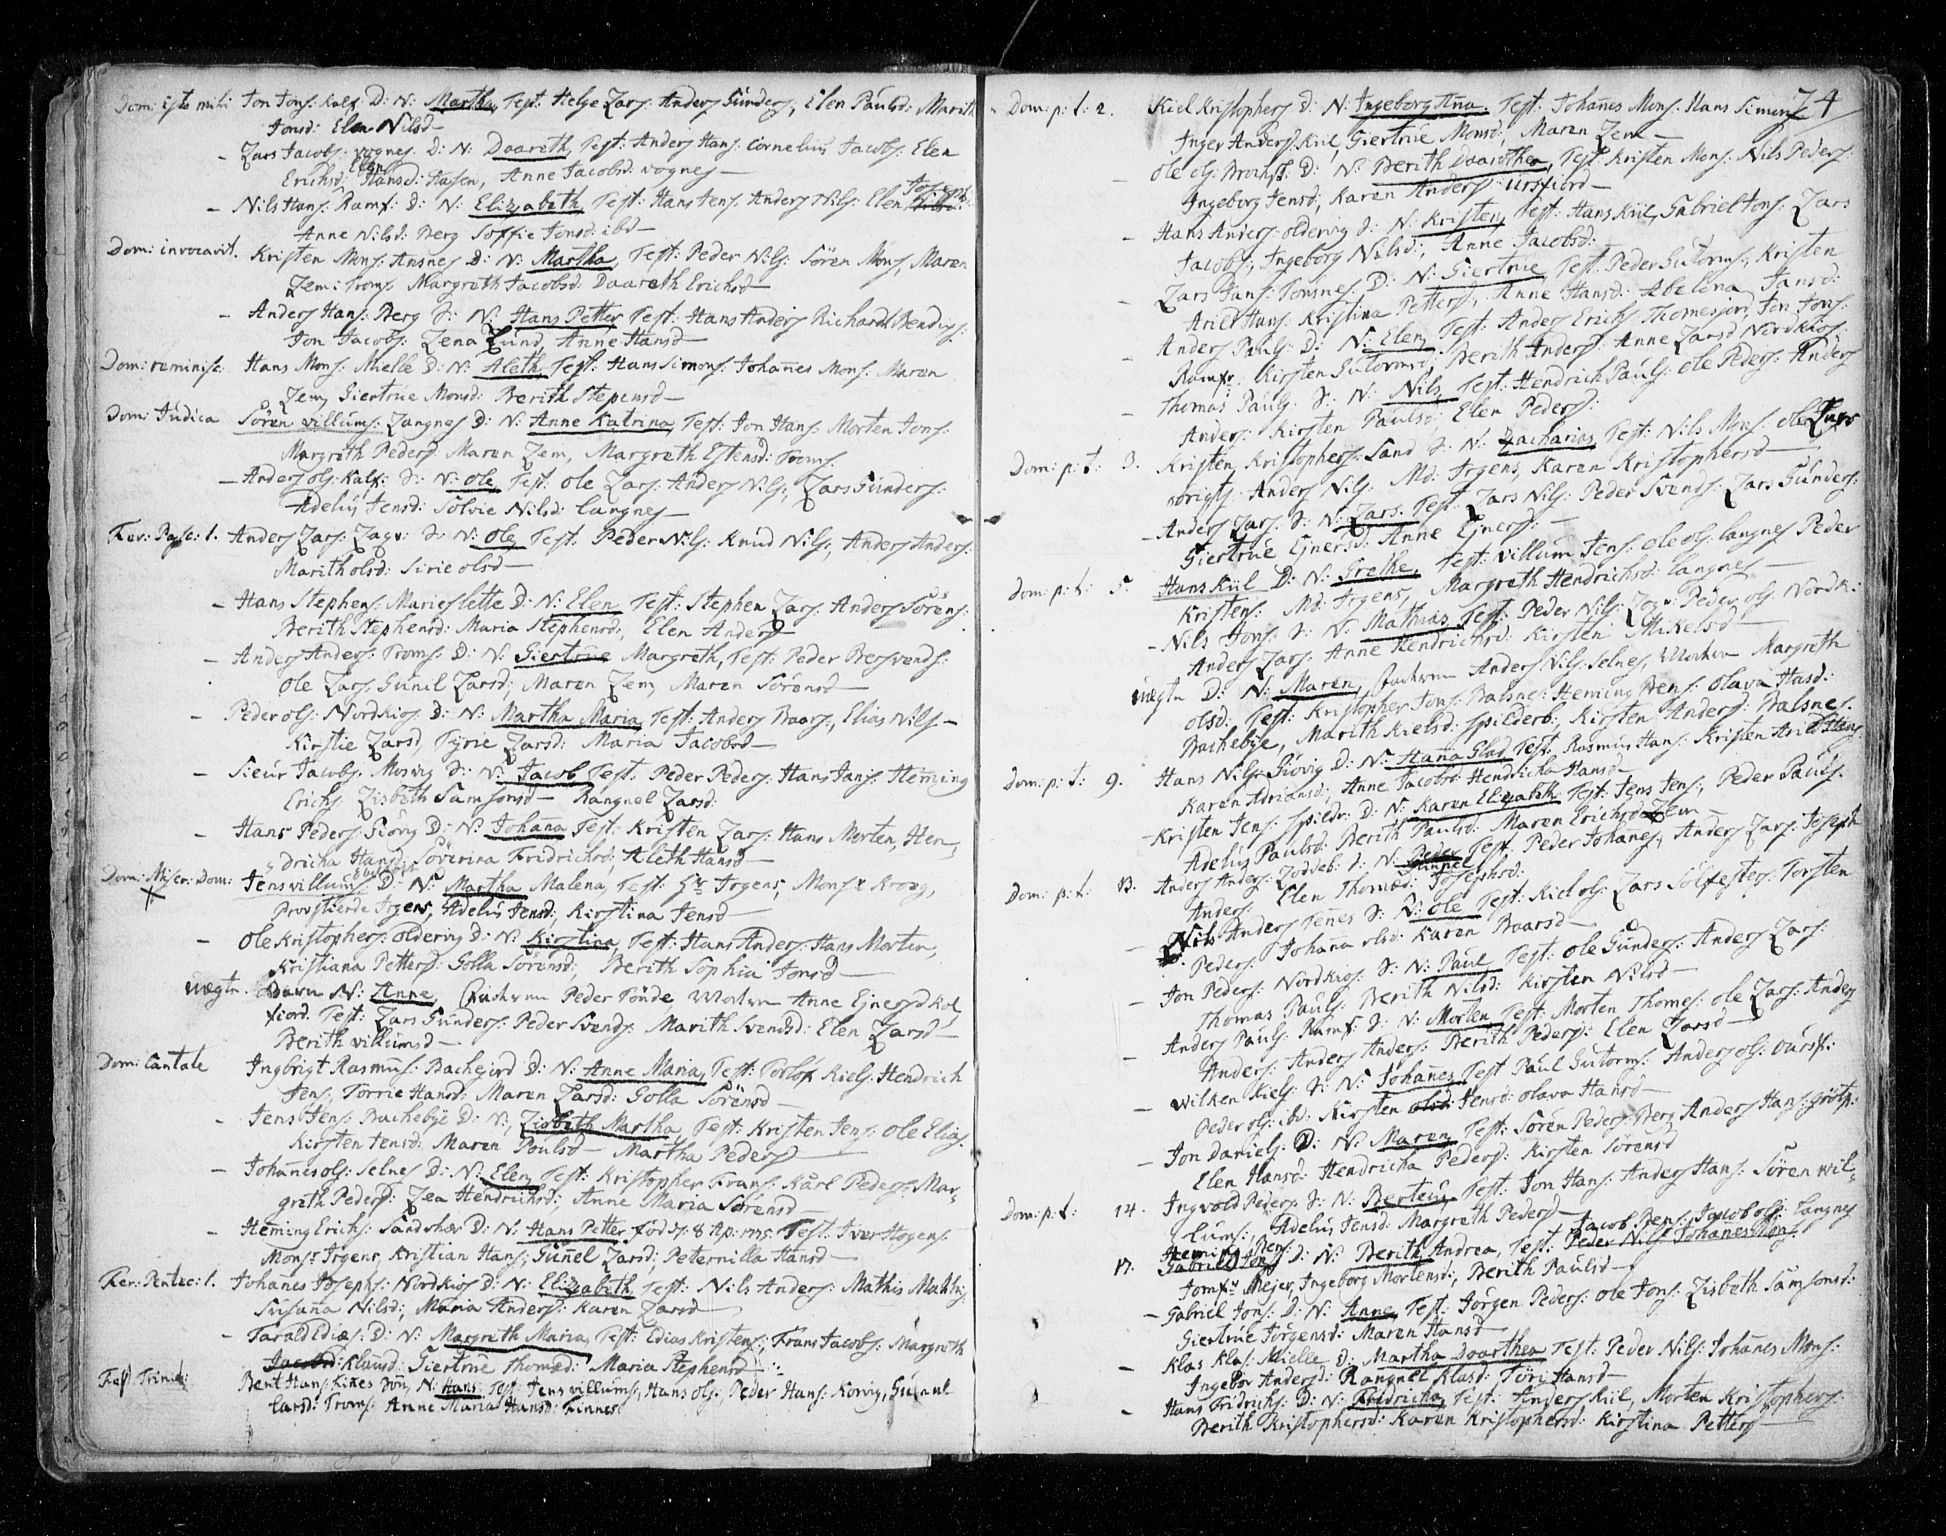 Dom: esto mihi Jon Jons: Kalf D: N: Martha, Test: Helge Lars: Anders Gunders, Elen Paulsd: Marith
Jonsd: Elen Nilsd
- Lars Jacobs: vognes D: N: Daareth, Test: Anders Hans: Cornelius Jacobs: Elen
Erichsd: Elen Hansd: Hasen, Anne Jacobsd: vognes
- Nils Hans: Ramf: D: N: Elizabeth, Test: Hans Jens: Anders Nils: Elen
Anne Nilsd: Berg Soffie Jonsd: ibd
Dom: invocavit. Kristen Mons: Ansnes D: N: Martha, Test: Peder Nils: Sören Mons, Maren
Lem: Troms Margreth Jacobsd: Daareth Erichsd
- Anders Hans: Berg S: N: Hans Petter Test: Hans Anders Richard Bendixs:
Jon Jacobs: Lena Lund, Anne Hansd
Dom: reminisc: Hans Mons: Mielle D: N: Aleth Test: Hans Simons: Johannes Mons: Maren
Lem, Giertrue Monsd: Berith Stepensd
Dom: Judica Sören villums: Langnes D: N: Anne Katrina, Test: Jon Hans Morten Jons:
Margreth Peders: Maren Lem, Margreth Estensd: Troms:
- Anders Ols: Kalf: S: N: Ole, Test: Ole Lars: Anders Nils, Lars Gunders:
Adelus Jensd: Solvie Nilsd: Langnes
Fer: Pasc: 1. Anders Lars: Lagv: S: N: Ole, Test: Peder Nils: Knud Nils, Anders Anders:
Marith Olsd: Sirie Olsd
- Hans Stephens: Marieslette D: N: Elen Test: Stephen Lars: Anders Sörens:
Berith Stephensd: Maria Stephensd, Elen Andersd
- Anders Anders: Troms: D: N: Giertrue Margreth, Test: Peder Bersvends:
Ole Lars, Gunil Larsd; Maren Lem, Maren Sörensd
- Peder Ols: Nordkios D: N: Martha Maria, Test: Anders Baars, Elias Nils
Kirstie Larsd, Tyrie Larsd: Maria Jacobsd
- Sieur Jacobs: Mosvig S: N: Jacob Test: Peder Peders: Hans Jans: Heming
Erichs: Lisbeth Samsonsd Rangnel Larsd:
- Hans Peders: Siövig D: N: Johanna Test: Kristen Lars: Hans Morten, Hen-
dricha Hansd: Söverina Fridrichsd, Aleth Hansd
Dom: Miser: Dom: Jens villums: D: N: Martha Malena, Test: Hr Irgens, Monsr Krog,
Provstierde Irgens, Adelus Jensd, Kirstina Jensd
- Ole Kristophers: oldervig D: N: Kirstina Test: Hans Anders: Hans Morten,
Kristiana Pettersd: Golla Sörensd: Berith Sophia Jonsd
uægte Barn N: Anne, Peder Tönde Anne Ejnersd Kol
fiord. Test: Lars Gunders: Peder Svends: Marith Svendsd: Elen Larsd
Berith villumsd
Dom: Cantate Ingbrigt Rasmus: Bachejord D: N: Anne Maria, Test: Torlof Kiels: Hendrich
Jens, Torrie Hansd: Maren Larsd: Golla Sörensd
- Jens Jens: Bachebye D: N: Lisbeth Martha, Test: Kristen Jens: Ole Elias
Kirsten Jensd: Maren Poulsd Martha Pedersd
- Johannes Ols: Selnes D: N: Elen Test: Kristopher Frans: Karl Peders: Mar-
greth Pedersd: Lea Hendrichsd, Anne Maria Sörensd
- Heming Erichs: Sandshav D: N: Hans Petter, fød d: 8 Ap: 1775. Test: Iver Hogens:
Monsr Irgens, Kristian Hans, Gunnel Larsd: Peternilla Hansd
Fer: Pentec: 1. Johannes Josephs: Nordkios D: N: Elizabeth, Test: Nils Anders: Mathis Mathis,
Susanna Nilsd: Maria Andersd: Karen Larsd
- Tarald Edias: D: N: Margreth Maria, Test: Edias Kristens, Frans Jacobs: Margreth
Jacobsd: Klausd: Giertrue Thomæd: Maria Stephensd
Fest Trinit: Bent Hans: Finnes N: Hans Test: Jens villums, Hans Ols, Peder Hans: Korvig, Gunnel
Larsd: Troms: Anne Maria Hansd: Finnes
74
Dom: p: t: 2. Kiel Kristophers D: N: Ingeborg Anna. Test: Johannes Mons: Hans Simons
Inger Anders: Kiil, Giertrue Monsd; Maren Lem
- Ole Ols: D: N: Berith Daarothea, Test: Kristen Mons: Nils Peders:
Ingeborg Jensd, Karen Anders: Ursfiord
- Hans Anders: oldervig S: N: Kristen, Test: Hans Kiil, Gabriel Jons: Lars
Jacobs:, Ingeborg Nilsd:, Anne Jacobsd:
- Lars Jans: Tonsnes D: N: Giertrue, Test: Peder Gutorms:, Kristen
Arild Hans: Kristina Pettersd, Anne Hansd: Abelena Jansd:
- Anders Pauls: D: N: Elen, Test: Anders Erichs Thomesjord, Jon Jons:
Ramf: Kirsten Gutormsd, Berith Andersd: Anne Larsd Nordkios:
- Thomas Pauls: S: N: Nils, Test: Hendrich Pauls: Ole Peders: Anders
Anders: Kirsten Paulsd, Elen Pedersd:
Dom: p: t: 3. Kristen Kristophers: Sand S: N: Zacharias, Test: Nils Mons: Ole Lars
Anders Nils: Md: Irgens, Karen Kristophersd
- Anders Lars: S: N: Lars. Test: Lars Nils: Peder Svends: Lars Gunders:
Giertrue Ejnersd: Anne Ejnersd:
Dom: p: t: 5. Hans Kiil D: N: Grethe, Test: villum Jens: Ole Ols: Langnes Peder
Kristens: Md: Irgens, Margreth Hendrichsd: Langnes
- Nils Jons: S: N: Mathias, Test: Peder Nils: Peder Ols: Nordk:
Anders Lars: Anne Hendrichsd: Kirsten Mikelsd
uægte D: N: Maren, Anders Nils: Selnes, Margreth
Olsd: Test: Kristopher Jons: Balsnes: Heming Bens: Olava Hasd:
Bachebye, Marith Kielsd: Spilderb:, Kirsten Anders: Balsnes.
Dom: p: t: 9. Hans Nils: Siövig D: N: Hanna Glad Test: Rasmus Hans: Kristen Arild Hans
Karen Adriansd:, Anne Jacobsd: Hendricha Hansd
- Kristen Jens: Spildr: D: N: Karen Elizabeth, Test: Jens Jens:, Peder Pauls.
Adelus Paulsd: Berith Paulsd: Maren Erichsd Lem
Dom: p: t: 13. Anders Anders: D: N: Gunnel Test: Peder Johannes:, Anders Lars: Joseph
Anders: Elen Thomæd: Josephsd:
- Nils Anders Tennes S: N: Ole, Test: Kiel Ols: Lars Solfesters: Torsten
Peders: Johanna Olsd: Karen Baarsd
- Jon Peders: Nordkios: S: N: Paul Test: Ole Gunders: Anders Lars:
Thomas Pauls: Berith Nilsd: Kirsten Nilsd
- Anders Pauls: Ramf: S: N: Morten, Test: Morten Thomes: Ole Lars: Anders
Anders: Anders Anders: Berith Pedersd: Elen Larsd
- Wilken Kiels: S: N: Johannes Test Paul Gutorms: Anders Ols: Oursf:
Peder Ols: ibd: Kirsten Jensd: Olava Hansd
- Jon Daniels: D: N: Maren Test: Sören Peders: Berg Anders Hans: Gröt:
Elen Hansd: Hendricha Pedersd: Kirsten Sörensd
Dom: p: t: 14. Ingvold Peders: S: N: Berteus, Test: Jon Hans: Anders Hans: Sören wil-
lums:, Adelus Jensd: Margreth Pedersd
17. Gabriel Jons: D: N: Berith Andrea, Test: Jacob Bens: Jacob Ols: Langnes
Jomfr Mejer, Ingeborg Mortensd:, Berith Paulsd
- Gabriel Jons: D: N: Anne, Test: Jörgen Peders: Ole Jons: Lisbeth Samsonsd:
Giertrue Jörgensd: Maren Hansd
- Klas Klas: Mielle D: Martha Daarthea Test: Peder Nils: Johannes Mons:
Ingebor Andersd: Rangnel Klasd: Töri Hansd
- Hans Fridrichs: D: N: Fridricha, Test: Anders Kiil, Morten Kristophers:
Berith Kristophersd: Karen Kristophersd: Kirstina Pettersd